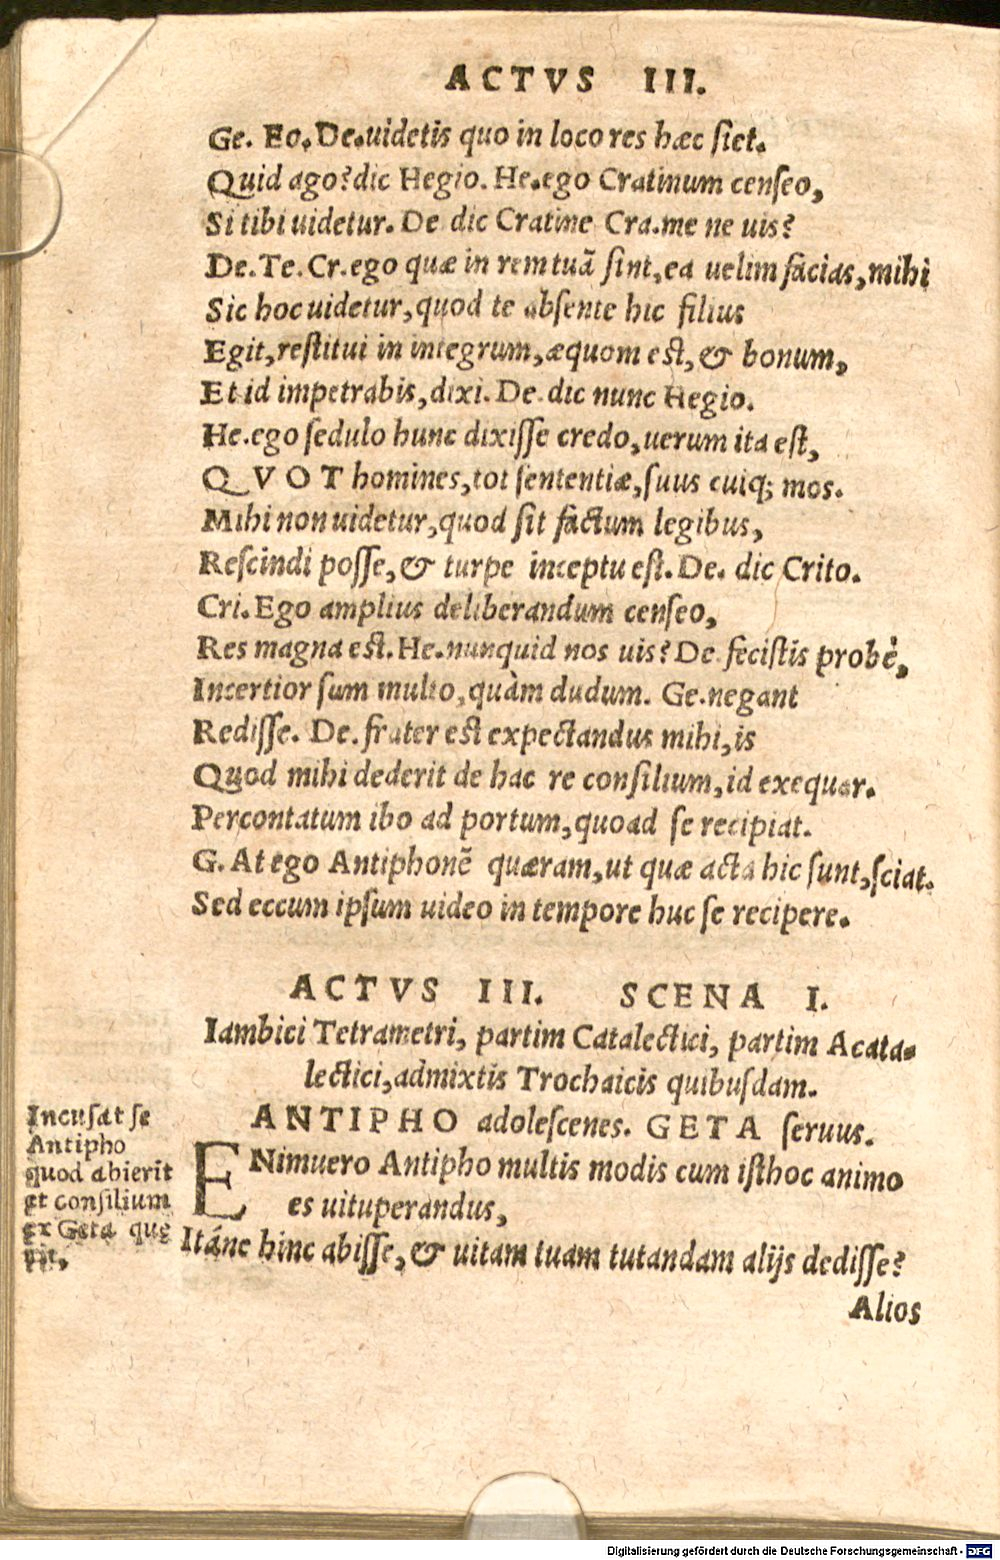 ACTVS III.
Ge. Eo. De. uidetis quo in loco res hæc siet.
Quid ago? dic Hegio. He. ego Cratinum censeo,
Si tibi uidetur. De dic Cratine Cra. me ne uis?
De. Te. Cr. ego quæ in rem tuā sint, ea uelim facias, mihi
Sic hoc uidetur, quod te absente hic filius
Egit, restitui in integrum, æquom est, & bonum,
Et id impetrabis, dixi. De. dic nunc Hegio.
He. ego sedulo hunc dixisse credo, uerum ita est,
QVOT homines, tot sententiæ, suus cuiq; mos.
Mihi non uidetur, quod sit factum legibus,
Rescindi posse, & turpe inceptu est. De. dic Crito.
Cri. Ego amplius deliberandum censeo,
Res magna est. He. nunquid nos uis? De fecistis probè,
Incertior sum multo, quàm dudum. Ge. negant
Redisse. De. frater est expectandus mihi, is
Quod mihi dederit de hac re consilium, id exequar.
Percontatum ibo ad portum, quoad se recipiat.
G. At ego Antiphonē quæram, ut quæ acta hic sunt, sciat.
Sed eccum ipsum uideo in tempore huc se recipere.
ACTVS III. SCENA I.
Iambici Tetrametri, partim Catalectici, partim Acata-
lectici, admixtis Trochaicis quibusdam.
ANTIPHO adolescenes. GETA seruus.
ENimuero Antipho multis modis cum isthoc animo
es uituperandus,
Itáne hinc abisse, & uitam tuam tutandam alijs dedisse?
Alios
Incusat se
Antipho
quod abierit
et consilium
ex Geta que
rit,
Digitalisierung gefördert durch die Deutsche Forschungsgemeinschaft - DFG